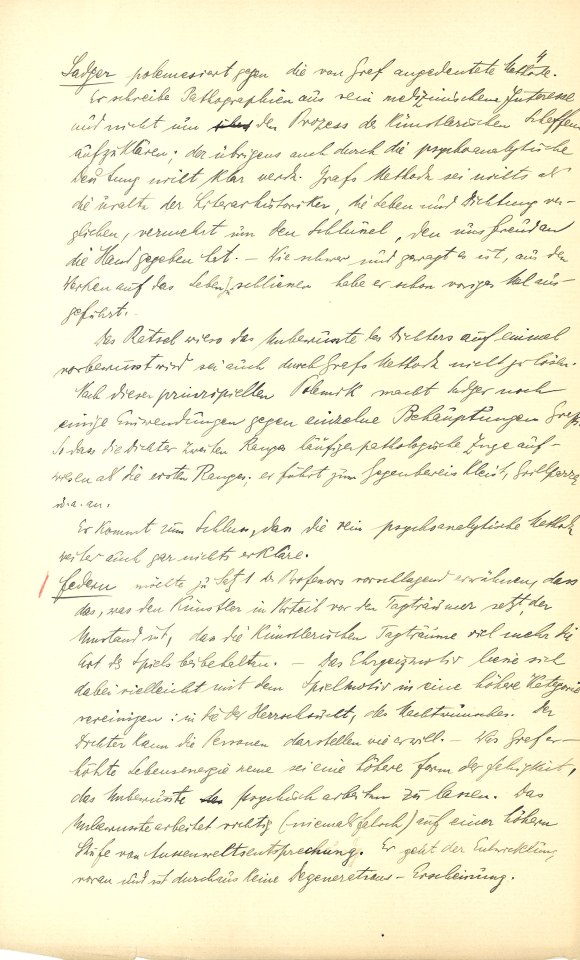 4
Sadger polemisiert gegen die von Graf angedeutete Methode.
Er schreibe Pathographien aus rein medizinischem Interesse
und nicht um den Prozess des künstlerischen Schaffens
aufzuklären; der übrigens auch durch die psychoanalytische
Deutung nicht klar werde. Grafs Methode sei nichts als
die uralte der Literarhistoriker, die Leben und Dichtung ver-
glichen, vermehrt um den Schlüssel, den uns Freud an
die Hand gegeben hat. – Wie schwer und gewagt es ist, aus den
Werken auf das Leben zu schliessen habe er schon voriges Mal aus-
geführt. –
Das Rätsel wieso das Unbewusste des Dichters auf einmal
vorbewusst wird sei auch durch Grafs Methode nicht zu lösen.
Nach dieser prinzipiellen Polemik macht Sadger noch
einige Einwendungen gegen einzelne Behauptungen Grafs.
So dass die Dichter zweiten Ranges häufiger pathologische Züge auf-
weisen als die ersten Ranges. er führt zum Gegenbeweis Kleist, Grillparzer
u. a. an.
Er kommt zum Schluss, dass die rein psychoanalytische Methode
weiter auch gar nichts erkläre.
Federn möchte zu Satz 1 des Professors vorschlagend erwähnen, dass
das, was den Künstler in Vorteil vor den Tagträumer setzt, der
Umstand ist, dass die künstlerischen Tagträume viel mehr die
Art des Spiels beibehalten. – Das Ehrgeizmotiv liesse sich
dabei vielleicht mit dem Spielmotiv in eine höhere Kategorie
vereinigen: in die der Herrschsucht, des Machtwunsches. Der
Dichter kann die Personen darstellen wie er will. – Was Graf er-
höhte Lebensenergie nenne sei eine höhere Form der Fähigkeit,
das Unbewusste psychisch arbeiten zu lassen. Das
Unbewusste arbeitet richtig (niemals falsch) auf einer höhern
Stufe von Aussenweltsentsprechung. Er geht der Entwicklung
voran und ist durchaus keine Degenerations-Erscheinung.